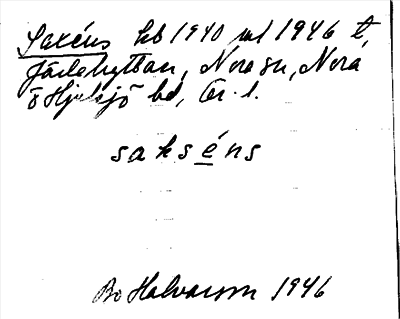 Saxéns kb 1940 ul 1946 t,
Järlehyttan, Nora sn, Nora
o Hjulsjö bd, Ör. l.
sakséns
Bo Halvarson 1946